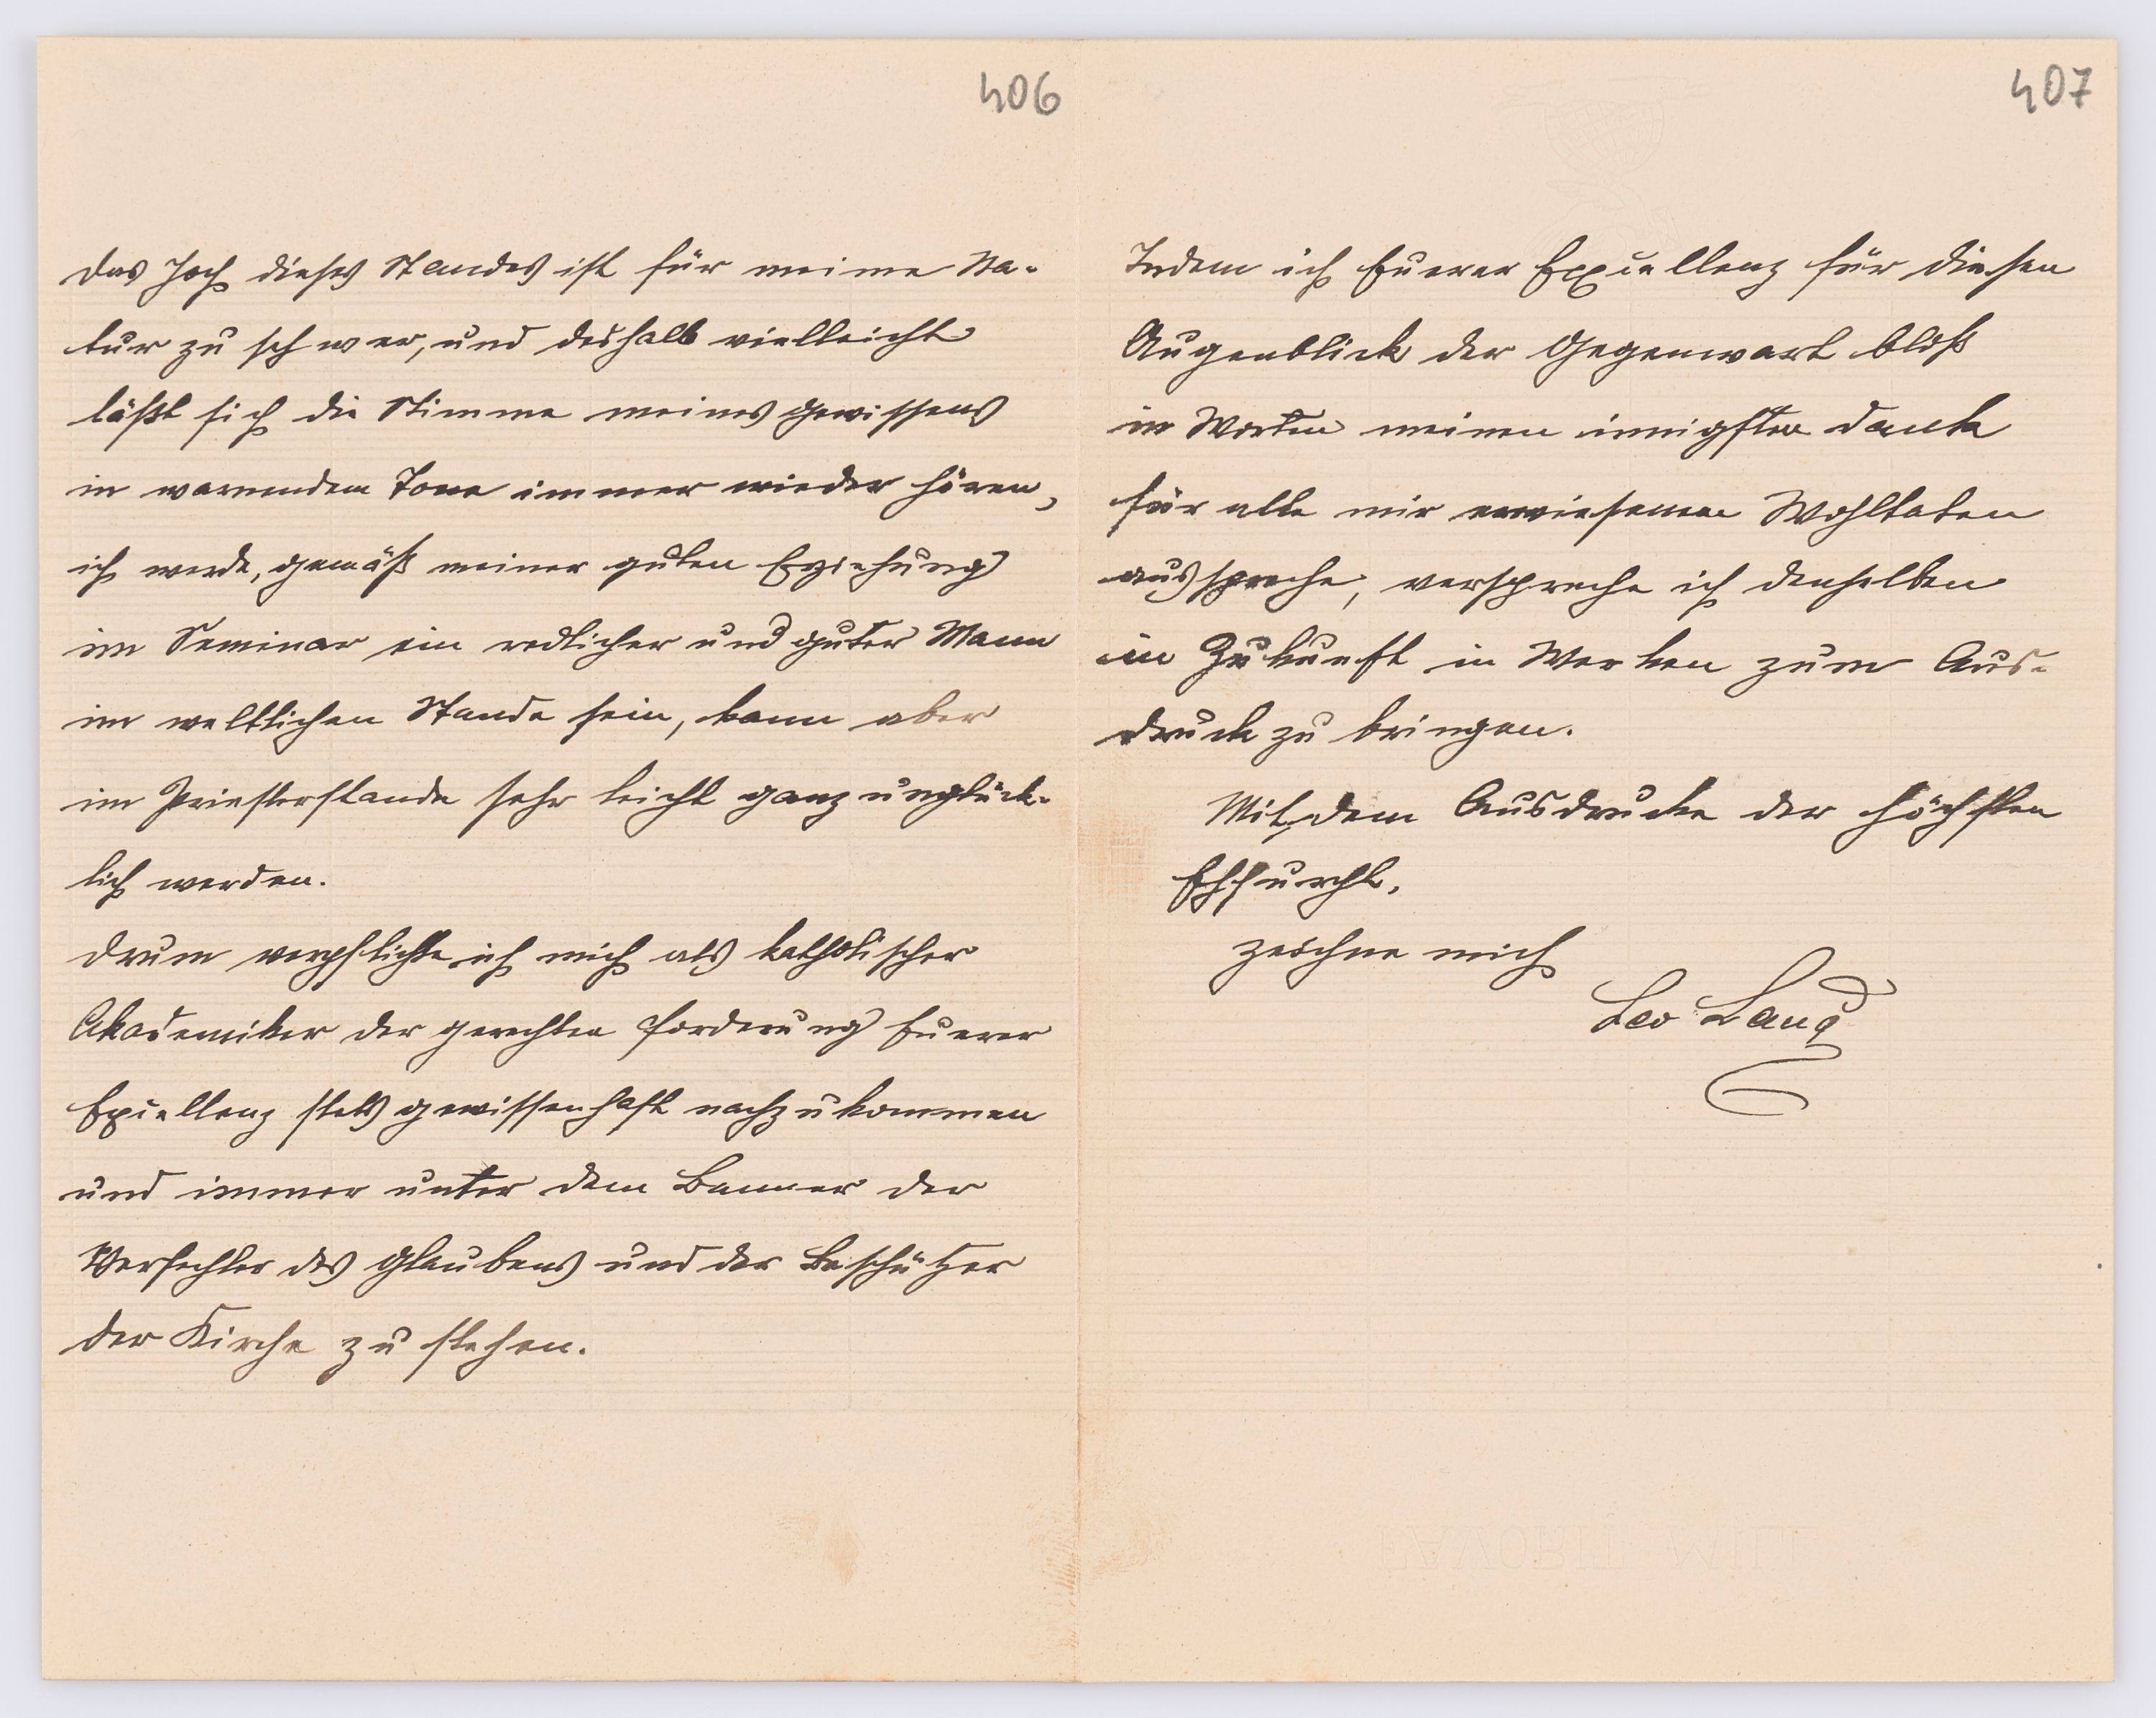 406
Das Joch dieses Standes ist für meine Na-
tur zu schwer, und deshalb vielleicht
läßt sich die Stimme meines Gewissens
in warnendem Tone immer wieder hören,
ich werde, gemäß meiner guten Erziehung
im Seminar ein redlicher und guter Mann
im weltlichen Stande sein, kann aber
im Priesterstande sehr leicht ganz unglück-
lich werden.
Drum verpflichte ich mich als katholischer
Akademiker der gerechten Forderung Euerer
Exzellenz stets gewissenhaft nachzukommen
und immer unter dem Banner der
Verfechter des Glaubens und der Beschützer
der Kirche zu stehen.
407
Indem ich Euerer Exzellenz für diesen
Augenblick der Gegenwart bloß
in Worten meinen innigsten Dank
für alle mir erwiesenen Wohltaten
ausspreche, verspreche ich denselben
in Zukunft in Werken zum Aus-
druck zu bringen.
Mit dem Ausdrucke der höchsten
Ehfurcht,
zeichne mich
Leo Lang
FAVORIT MILL